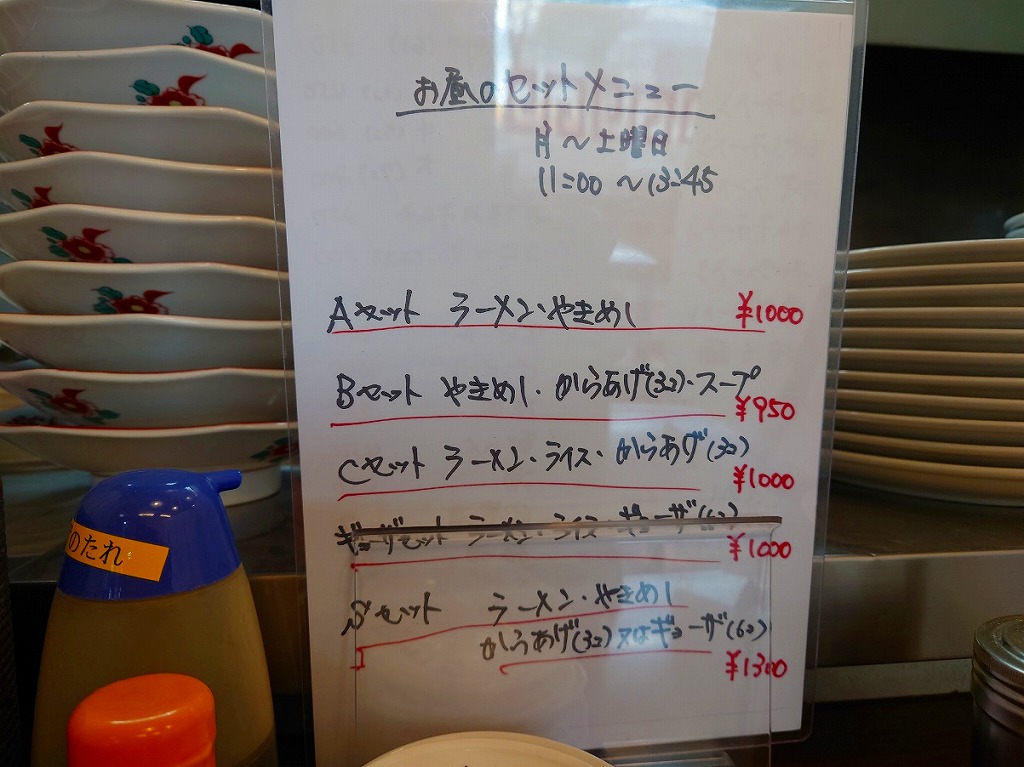 お昼のセットメニュー
月〜土曜日
11:00 〜13:45
Aセット ラーメン・やきめし ¥1000
Bセット やきめし・からあげ(3コ)・スープ
¥950
Cセット ラーメン・ライス・からあげ(3コ)
¥1000
ギョーザセット ラーメン・ライス・ギョーザ(6コ)
¥1000
Sセット ラーメン・やきめし
からあげ(3コ)又はギョーザ(6コ)
¥1300
のたれ